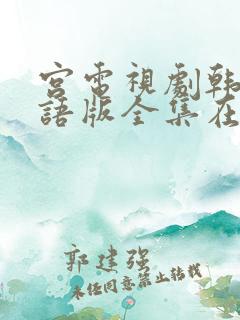 宮電視劇韩
語版全集在
郭建强
未任同意禁止转载